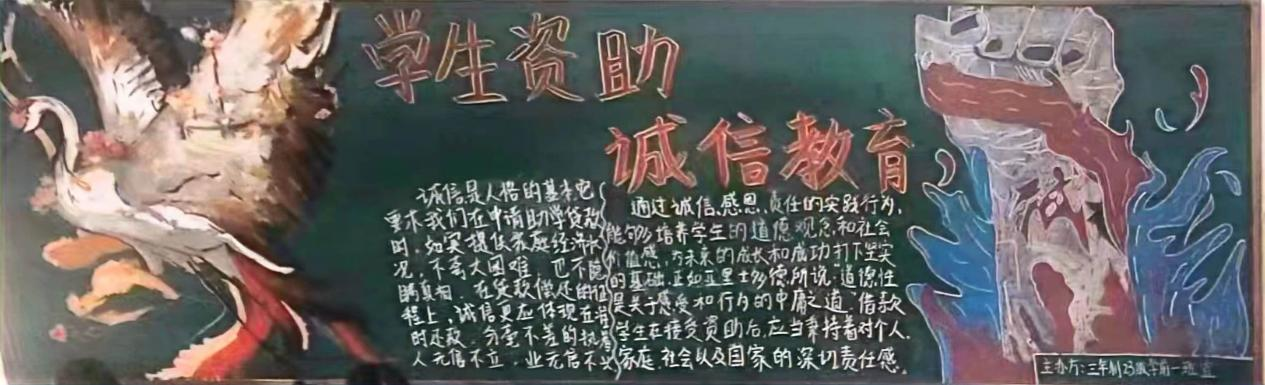 学生资助
诚信教育
诚信是人格的基本,它
要求我们在申请助学贷款
时,如实提供家庭经济状
况,不夸大困难,也不隐
瞒真相。在贷款偿还的过
程上,诚信更应体现在准
时的还款,分毫不差的执着
人无信不立,业无信不兴
通过诚信、感恩、责任的实践行为,
能够培养学生的道德观念和社会
价值感,为未来的成长和成功打下坚实
的基础,正如亚里士多德所说:道德性
是关于感受和行为的中庸之道。借款
学生在接受资助后,应当秉持着对个人、
家庭、社会以及国家的深切责任感。
诚
主办方:三年制23级学前一班